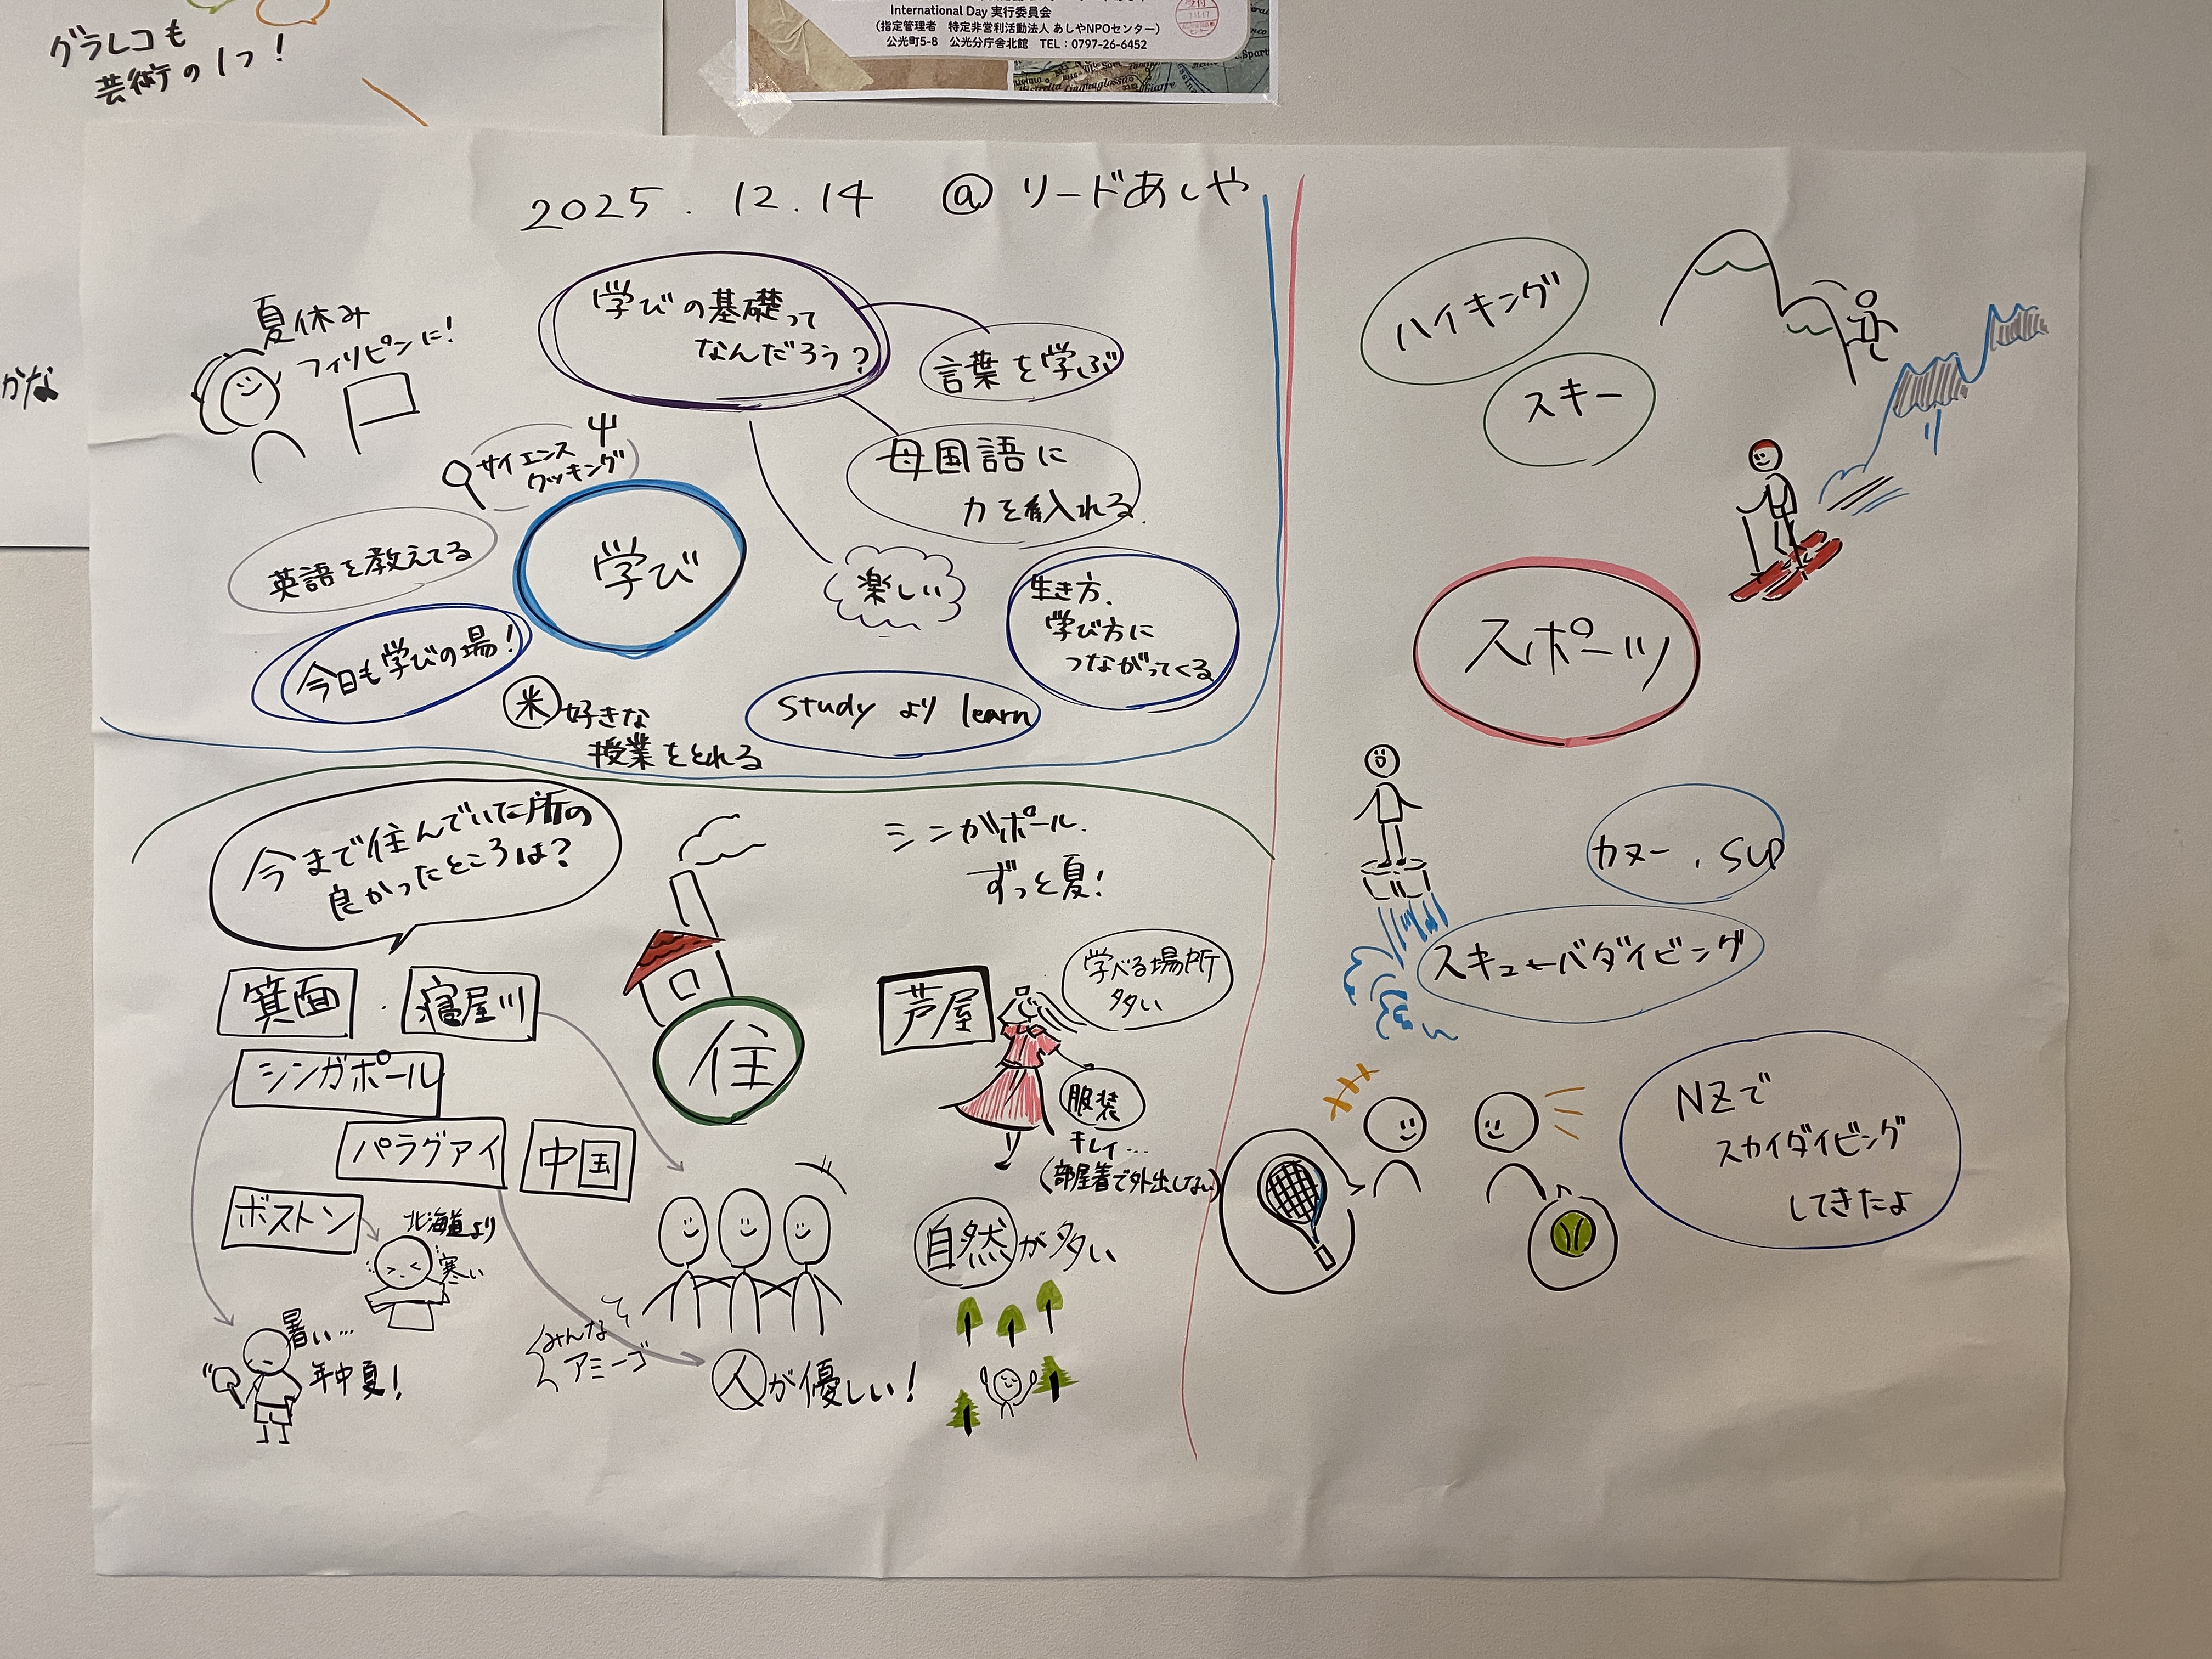 グラレコも
芸術の1つ!
かな
International Day 実行委員会
(指定管理者 特定非営利活動法人 あしやNPOセンター)
公光町5-8 公光分庁舎北館 TEL:0797-26-6452
2025.12.14 @リードあしや
夏休み
フィリピンに!
学びの基礎って
なんだろう?
言葉を学ぶ
母国語に
力を入れる.
楽しい
サイエンス
クッキング
英語を教えてる
学び
今日も学びの場!
米 好きな
授業をとれる
study より learn
生き方、
学び方に
つながってくる
今まで住んでいた所の
良かったところは?
箕面
寝屋川
シンガポール
パラグアイ
中国
ボストン
北海道より
寒い
暑い…
年中夏!
住
シンガポール.
ずっと夏!
芦屋
学べる場所
多い
服装
キレイ…
(部屋着で外出しない)
みんな
アミーゴ
人が優しい!
自然が多い
ハイキング
スキー
スポーツ
カヌー、SUP
スキューバダイビング
NZで
スカイダイビング
してきたよ